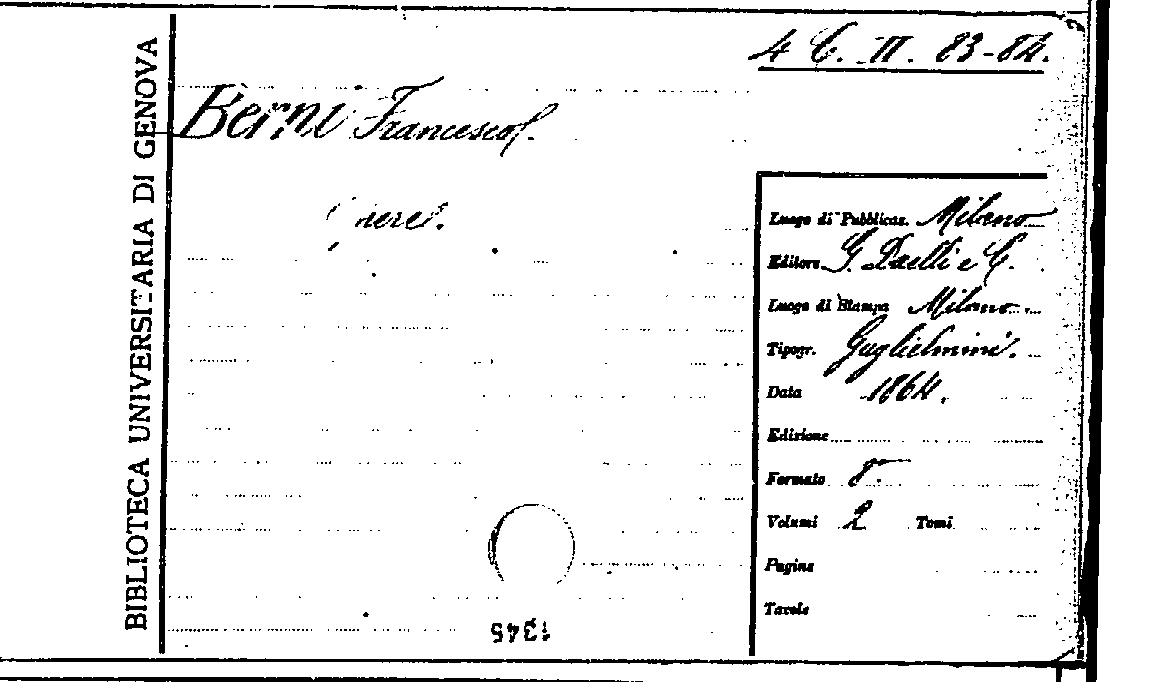 4 C. II. 83-84.
BIBLIOTECA UNIVERSITARIA DI GENOVA
Berni Francesco.
Luogo di Pubblicaz. Milano
Editore G. Daelli e C.
Luogo di Stampa Milano
Tipogr. Guglielmini.
Data 1864.
Edizione
Formato 8.°
Volumi 2 Tomi
Pagine
Tavole
1345